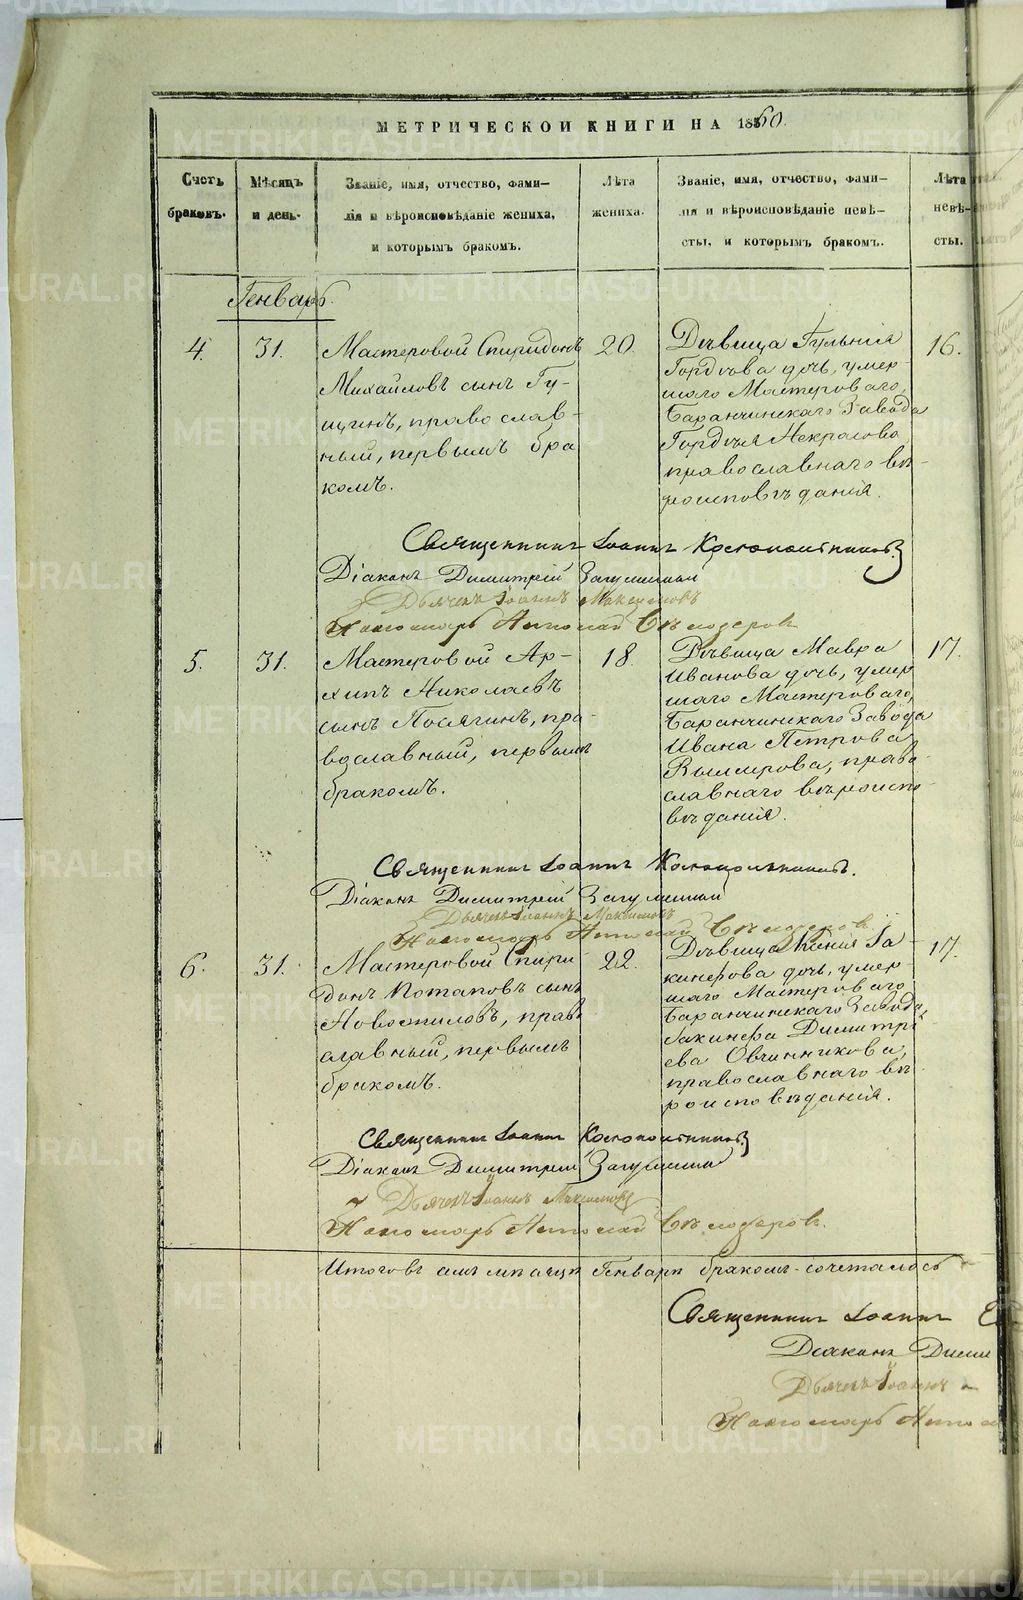 МЕТРИЧЕСКОЙ КНИГИ НА 1860.
Счетъ браковъ.
Мѣсяцъ и день.
Званіе, имя, отчество, фами-
лія и вѣроисповѣданіе жениха,
и которымъ бракомъ.
Лѣта жениха.
Званіе, имя, отчество, фами-
лія и вѣроисповѣданіе невѣ-
сты, и которымъ бракомъ.
Лѣта невѣ-
сты.
Генварь.
4.
31.
Мастеровой Спиридонъ
Михайловъ сынъ Гу-
щинъ, православ-
ный, первымъ бра
комъ.
20.
Дѣвица Гульнія
Гордѣева дочь, умер-
шаго Мастероваго,
Баранчинскаго Завода
Гордѣя Некрасова
православнаго вѣ-
роисповѣданія.
16.
Священникъ Іоаннъ
Діаконъ Димитрій
Дьячекъ Іоаннъ Максимовъ
Пономарь
5.
31.
Мастеровой Ар-
хипъ Николаевъ
сынъ Посягинъ, пра-
вославный, первымъ
бракомъ.
18.
Дѣвица Мавра
Иванова дочь, умер
шаго Мастероваго,
Баранчинскаго Завода
Ивана Петрова
право-
славнаго вѣроиспо-
вѣданія.
17.
Священникъ Іоаннъ
Діаконъ Димитрій
Дьячекъ Іоаннъ Максимовъ
Пономарь
6.
31.
Мастеровой Спири-
донъ Потаповъ сынъ
Новожиловъ, право
славный, первымъ
бракомъ.
22.
Дѣвица Ксенія Іа-
кинфова дочь, умер-
шаго Мастероваго
Баранчинскаго Завода,
Іакинфа Димитрі
ева Овчинникова,
православнаго вѣ
роисповѣданія.
17.
Священникъ Іоаннъ
Діаконъ Димитрій
Дьячекъ Іоаннъ Максимовъ
Пономарь
Генварѣ бракомъ сочеталось
Священникъ Іоаннъ
Діаконъ Дими
Дьячекъ Іоаннъ
Пономарь
METRIKI.GASO-URAL.RU